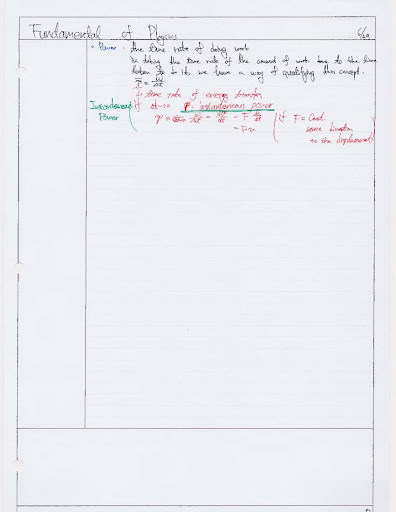 Fundamental of Physics
• Power : the time rate of doing work
the time rate of the amount of work done to the time
taken to do it, we have a way of quantifying this concept.
P = ΔW/Δt
↳ time rate of energy transfer
Instantaneous Power
if Δt→0 P = instantaneous power
P = lim ΔW/Δt = dW/dt = F dx/dt
= Fv
if F = Const.
same direction
to the displacement